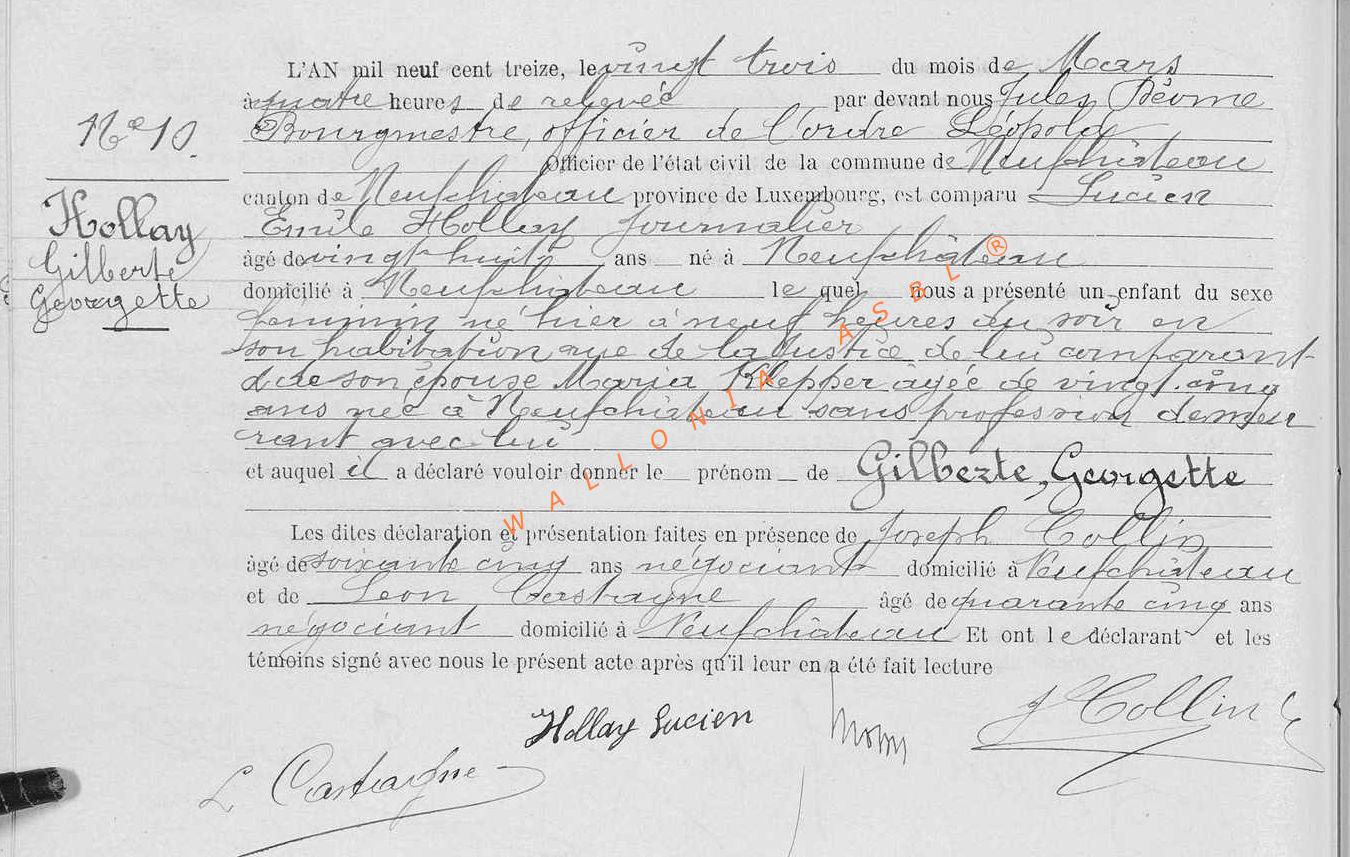 L'AN mil neuf cent treize, le vingt trois du mois de Mars
à quatre heures de relevée par devant nous Jules
Bourgmestre, officier de l'ordre Léopold
Officier de l'état civil de la commune de Neufchâteau
canton de Neufchateau province de Luxembourg, est comparu Lucien
Emile Hollay journalier
âgé de vingt huit ans né à Neufchâteau
domicilié à Neufchâteau le quel nous a présenté un enfant du sexe
feminin né hier à neuf heures du soir en
son habitation rue de la Justice de lui comparant
& de son épouse Maria Klepper âgée de vingt-cinq
ans née à Neufchâteau sans profession demeu
rant avec lui
et auquel il a déclaré vouloir donner le prénom de Gilberte, Georgette
Les dites déclaration et présentation faites en présence de Joseph Collin
âgé de soixante cinq ans négociant domicilié à Neufchâteau
et de Leon Castagne âgé de quarante cinq ans
négociant domicilié à Neufchâteau Et ont le déclarant et les
témoins signé avec nous le présent acte après qu'il leur en a été fait lecture
No 10.
Hollay
Gilberte
Georgette
Hollay Lucien
J Collin
L Castagne
WALLONIA ASBL ®